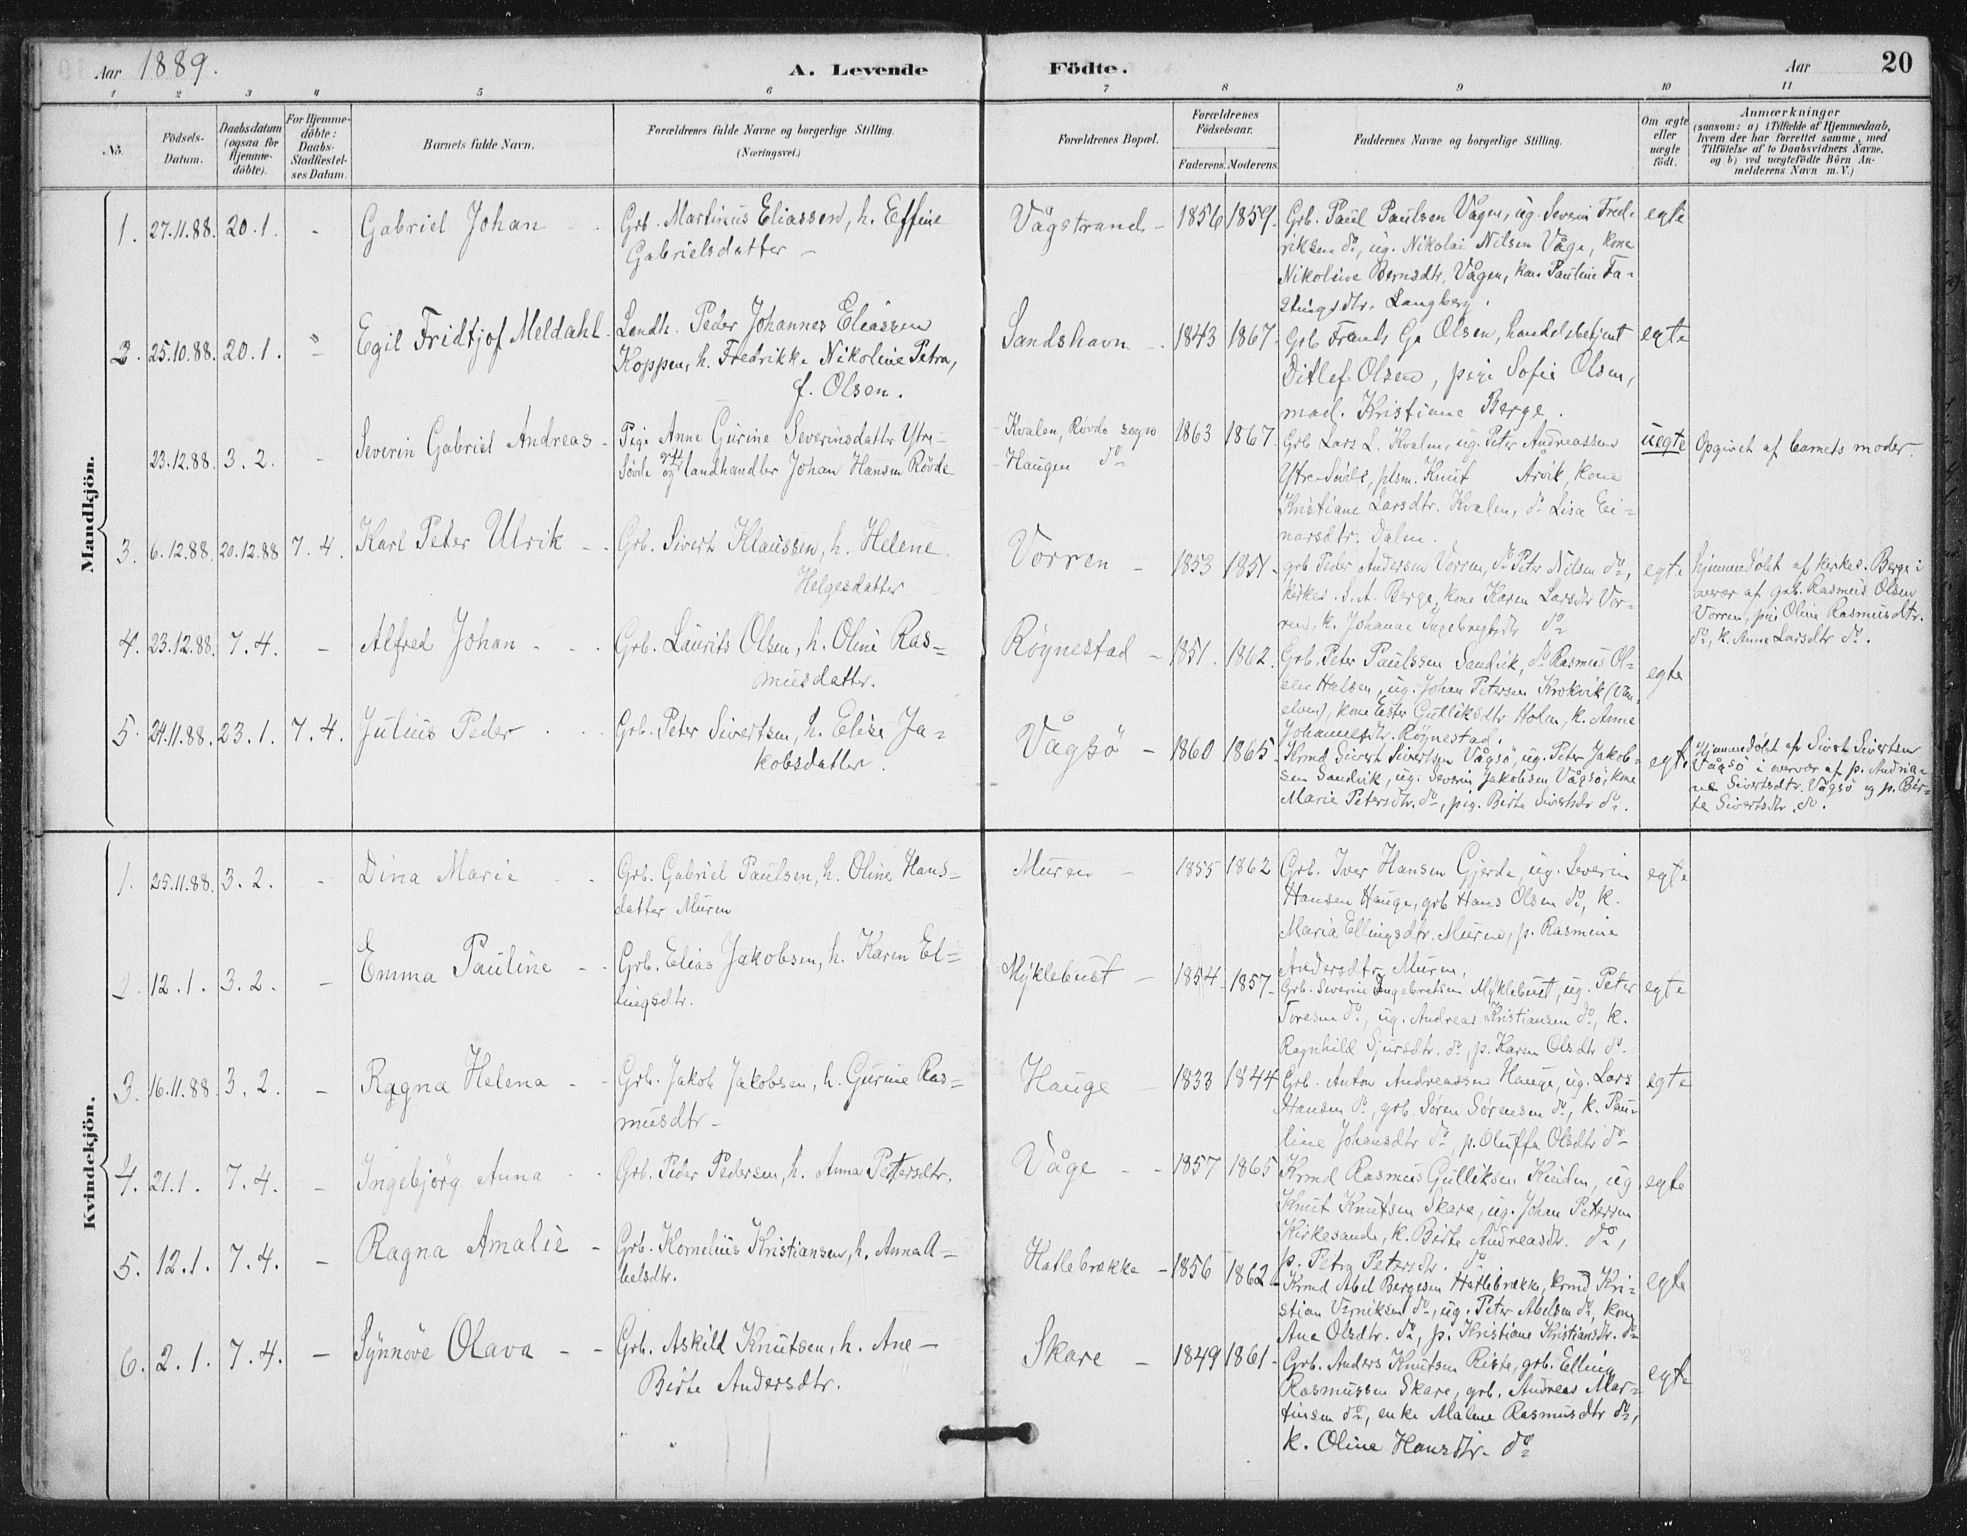 Aar 1889.
A. Levende Födte.
Aar 20
1 2 3 4 5 6 7 8 9 10 11
No.
Födsels-Datum.
Daabsdatum (ogsaa for Hjemme-döbte).
For Hjemme-döbte: Daabs-Stadfæstel-ses Datum.
Barnets fulde Navn.
Forældrenes fulde Navne og borgerlige Stilling.
(Næringsvei.)
Forældrenes Bopæl.
Forældrenes Födselsaar.
Faderens. Moderens.
Faddernes Navne og borgerlige Stilling.
Om ægte eller uægte födt.
Anmærkninger
(saasom: a) i Tilfælde af Hjemmedaab,
hvem der har forrettet samme, med
Tilföielse af to Daabsvidners Navne,
og b) ved uægtefödte Börn An-
melderens Navn m. V.)
Mandkjön.
1. 27.11.88. 20.1. - Gabriel Johan
Grb. Martinus Eliassen, h. Effine
Gabrielsdatter -
Vågstrand - 1856 1859.
Grb. Paul Paulsen Vågen, ug. Severin Fred-
riksen do, ug. Nikolai Nilsen Våge, kone
Nikoline Bernsdtr. Vågen, kone Pauline Fa-
stingsdtr. Langberg.
egte
2. 25.10.88. 20.1. - Egil Fridtjof Meldahl.
Landh. Peder Johannes Eliassen
Koppen, h. Fredrikke Nikoline Petra,
f. Olsen.
Sandshavn - 1843 1867.
Grb Frants Olsen, handelsbetjent
Ditlef Olsen, pige Sofie Olsen,
mad. Kristiane Berge.
egte
23.12.88. 3.2. - Severin Gabriel Andreas -
Pige Anne Gurine Severinsdatter Ytre-
Søvde og landhandler Johan Hansen Røvde
- Kvalen, Røvde sogn
- Haugen do
1863 1867.
Grb Lars L. Kvalen, ug. Peter Andreassen
Ytre-Søvde, plsm. Knut Årvik, kone
Kristiane Larsdtr. Kvalen, do Lisa Ei-
narsdtr. Dalen.
uegte
Opgivet af barnets moder.
3. 6.12.88. 20.12.88 7.4. Karl Peter Ulrik - -
Grb. Sivert Klaussen, h. Helene
Helgesdatter
Vorren - 1853 1851 -
grb Peder Andersen Vorren, do Peter Nilsen do,
kirkes. S. A. Berge, kone Karen Larsdtr Vor-
ren, k. Johanne Ingebregtsdtr do
egte
hjemmedøbt af kirkes. Berge i
overvær af grb. Rasmus Olsen
Vorren, pige Oline Rasmusdtr.
do, k. Anne Larsdtr do.
4. 23.12.88. 7.4. - Alfred Johan - - -
Grb. Laurits Olsen, h. Oline Ras-
musdatter.
Röynestad - 1851. 1862.
Grb. Peter Paulssen Sandvik, do Rasmus Ol-
sen Halsen, ug. Johan Petersen Krokvik (Van-
elven), kone Ester Gulliksdtr Holen, k. Anne
Johannesdtr. Röynestad.
egte
5. 24.11.88. 23.1. 7.4. Julius Peder
Grb. Peter Sivertsen, h. Elise Ja-
kobsdatter.
Vågsö - 1860 1865.
Krmd Sivert Sivertsen Vågsö, ug. Peter Jakob-
sen Sandvik, ug. Severin Jakobsen Vågsö, kone
Marie Petersdtr. do, pige Birte Sivertsdtr do.
egte
Hjemmedøbt af Sivert Sivertsen
Vågsö i overvær af p. Andria-
ne Sivertsdtr. Vågsö og p. Bir-
te Sivertsdtr do.
Kvindekjön.
1. 25.11.88. 3.2. - Dina Marie
Grb. Gabriel Paulsen, h. Oline Hans-
datter, Muren
Muren - 1855 1862
Grb. Iver Hansen Gjerde, ug. Severin
Hansen Hauge, grb Hans Olsen do, k.
Maria Ellingsdtr. Muren, p. Rasmine
Andersdtr Muren.
egte
2. 12.1. 3.2. - Emma Pauline - -
Grb. Elias Jakobsen, h. Karen El-
lingsdtr.
Myklebust - 1854. 1857.
Grb. Severin Ingebretsen Myklebust, ug. Peter
Toresen do, ug. Andreas Kristiansen do, k.
Ragnhild Sjursdtr. do, p. Karen Olsdtr do.
egte
3. 16.11.88 3.2. - Ragna Helena - -
Grb. Jakob Jakobsen, h. Gurine Ras-
musdtr -
Hauge - 1833 1844
Grb. Anton Andreassen Hauge, ug. Lars
Hansen do, grb. Søren Sørensen do, k. Pau-
line Johansdtr do, p. Oluffa Olsdtr do
egte
4. 21.1. 7.4. - Ingebjörg Anna - -
Grb. Peder Pedersen, h. Anna Petersdtr.
Våge - - 1857 1865
Krmd Rasmus Gulliksen Kinden, ug
Knut Knutsen Skare, ug. Johan Petersen
Kirkesande, k. Birte Andreasdtr. do,
p. Petra Petersdtr. do
egte
5. 12.1. 7.4. - Ragna Amalie -
Grb. Kornelius Kristiansen, h. Anna A-
belsdtr.
Hatlebrække - 1856 1862
Krmd Abel Bergesen Hatlebrække, krmd Kri-
stian do, ug. Peter Abelsen do, kone
Ane Olsdtr. do, p. Kristiane Kristiansdtr. do
egte
6. 2.1. 7.4. - Synnöve Olava - -
Grb. Askild Knutsen, h. Ane -
Birte Andersdtr.
Skare - 1849 1861 -
Grb. Anders Knutsen Riste, grb. Elling
Rasmussen Skare, grb. Andreas Mar-
tinsen do, enke Malene Rasmusdtr do,
k. Oline Hansdtr. do
egte